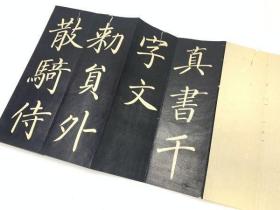 真書千
字文
勅員外
散騎侍